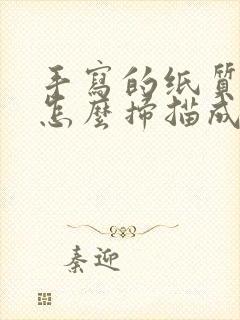 手寫的纸質
怎麼掃描成
秦迎